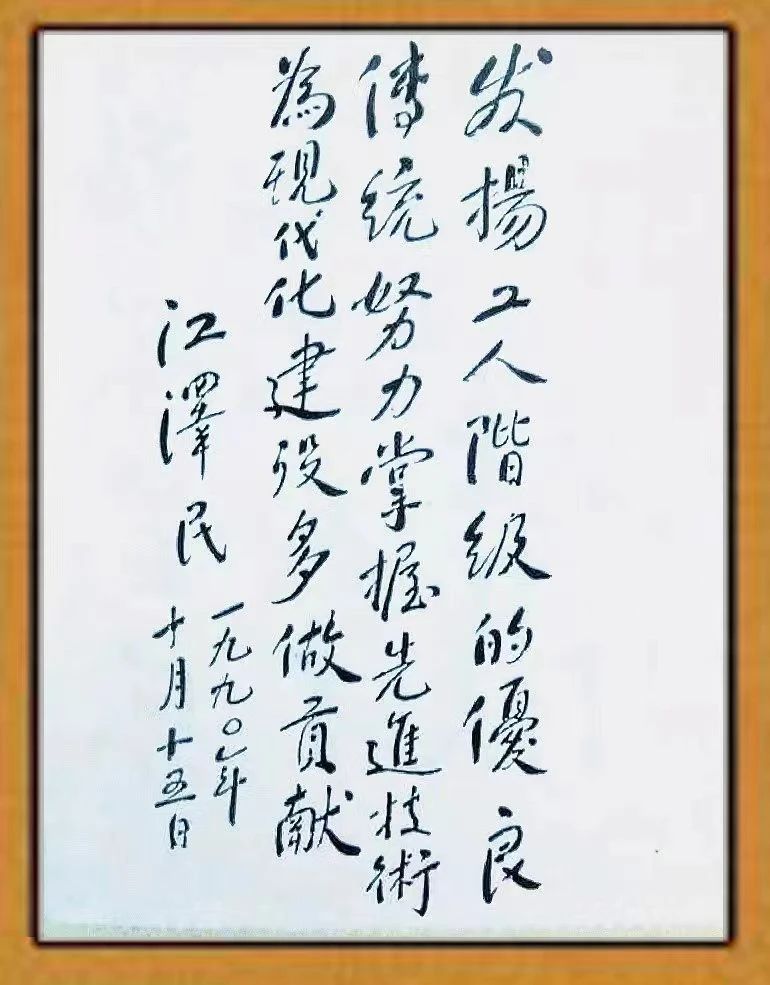 发揚工人階級的優良
傳統努力掌握先進技術
為現代化建设多做貢献
江澤民
一九九〇年
十月十五日